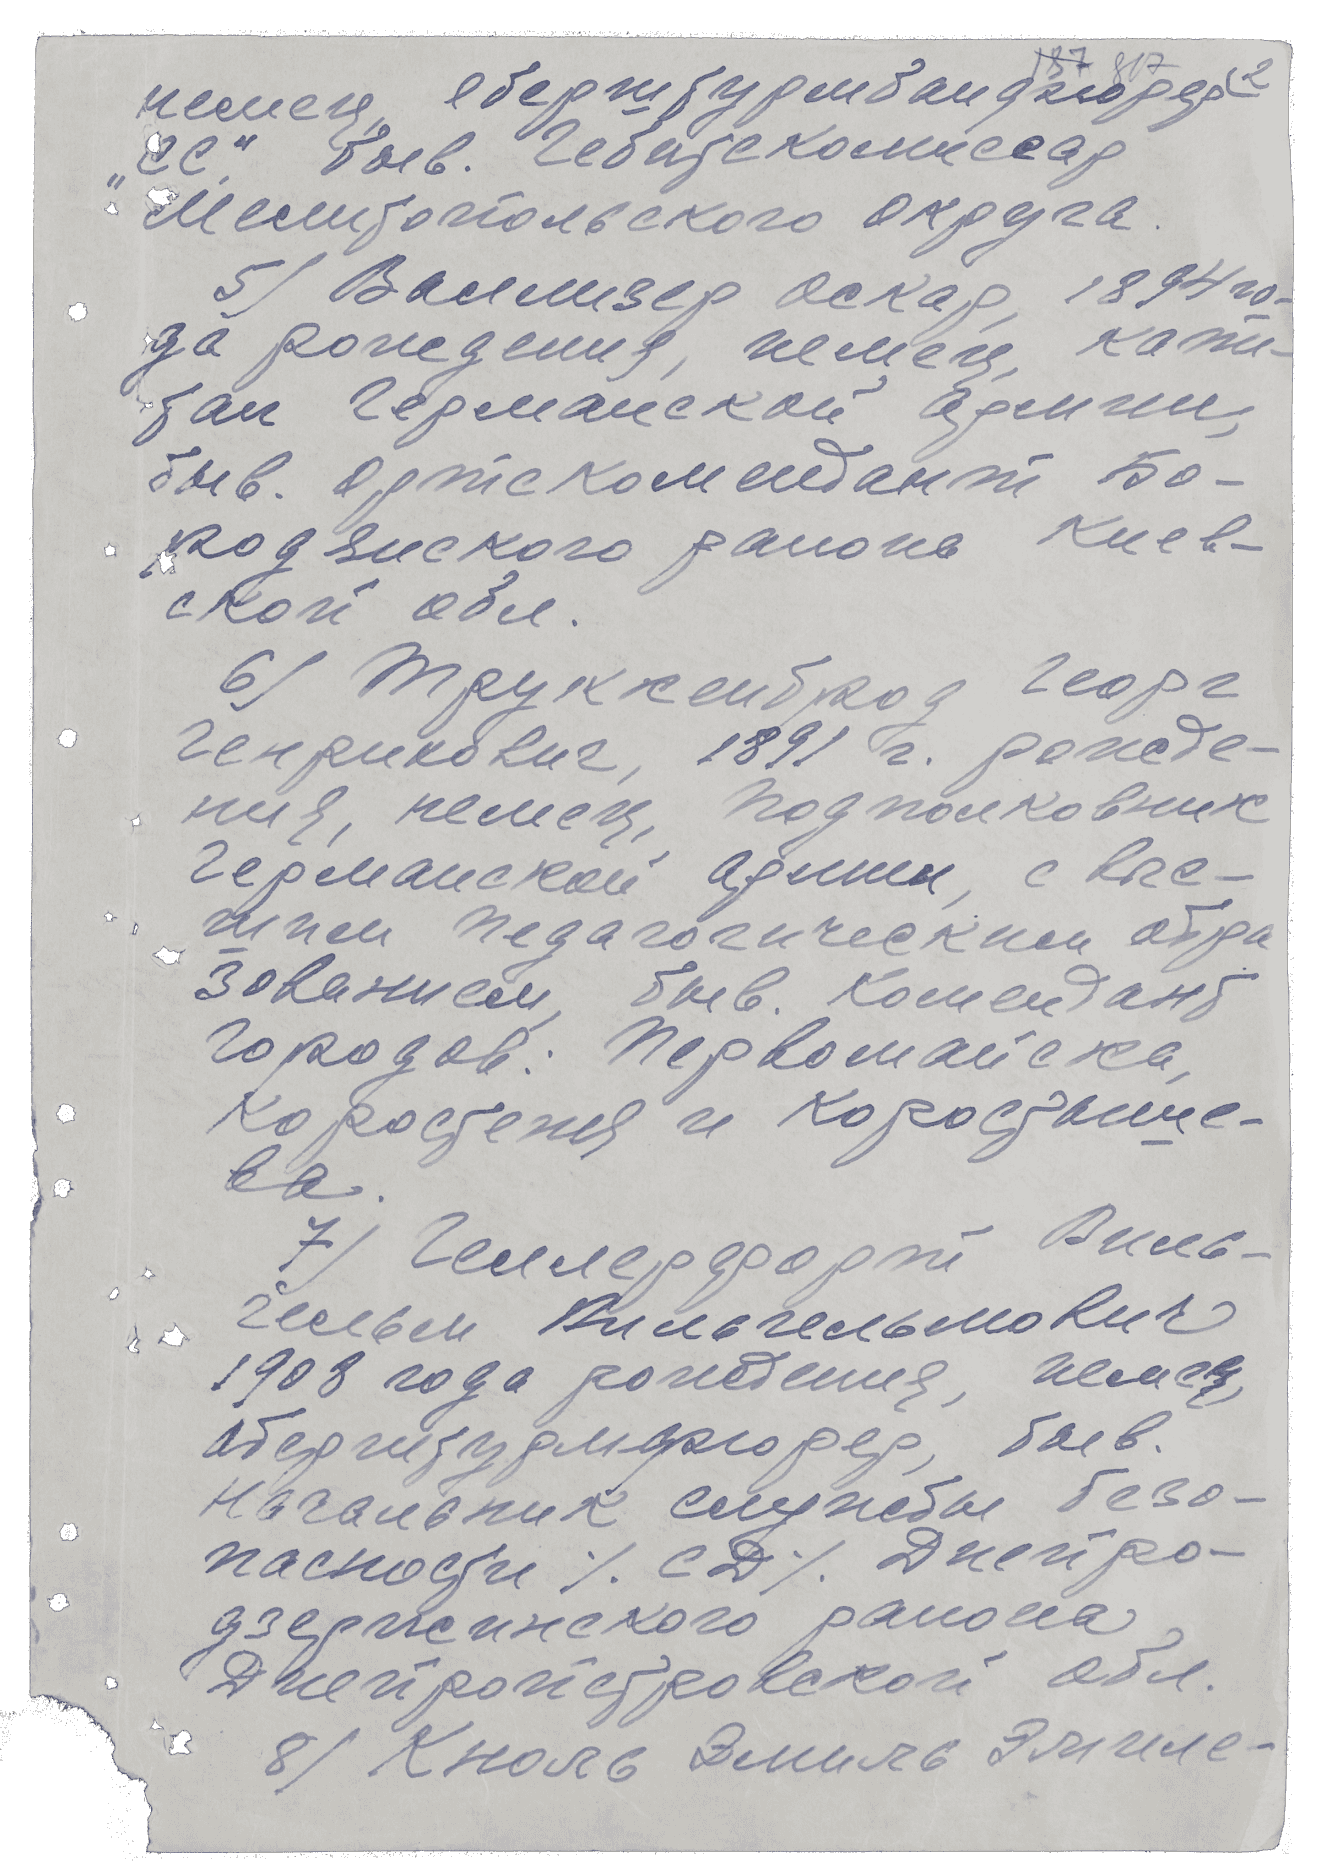 187 817 2
немец, оберштурмбанфюрер
„СС“ быв. Гебитскомиссар
Мелитопольского округа.
5/ Валлизер Оскар, 1894 го-
да рождения, немец, капи-
тан Германской Армии,
быв. ортскомендант Бо-
родянского района Киев-
ской обл.
6/ Труккенброд Георг
Генрихович, 1891 г. рожде-
ния, немец, подполковник
Германской армии, с выс-
шим педагогическим обра
зованием, быв. комендант
городов: Первомайска,
Коростеня и Коростыше-
ва.
7/ Геллерфорт Виль-
гельм Вильгельмович
1908 года рождения, немец,
обершурмфюрер, быв.
Начальник службы безо-
пасности /. СД /. Днепро-
дзержинского района
Днепропетровской обл.
8/ Кноль Эмиль Эмиле-